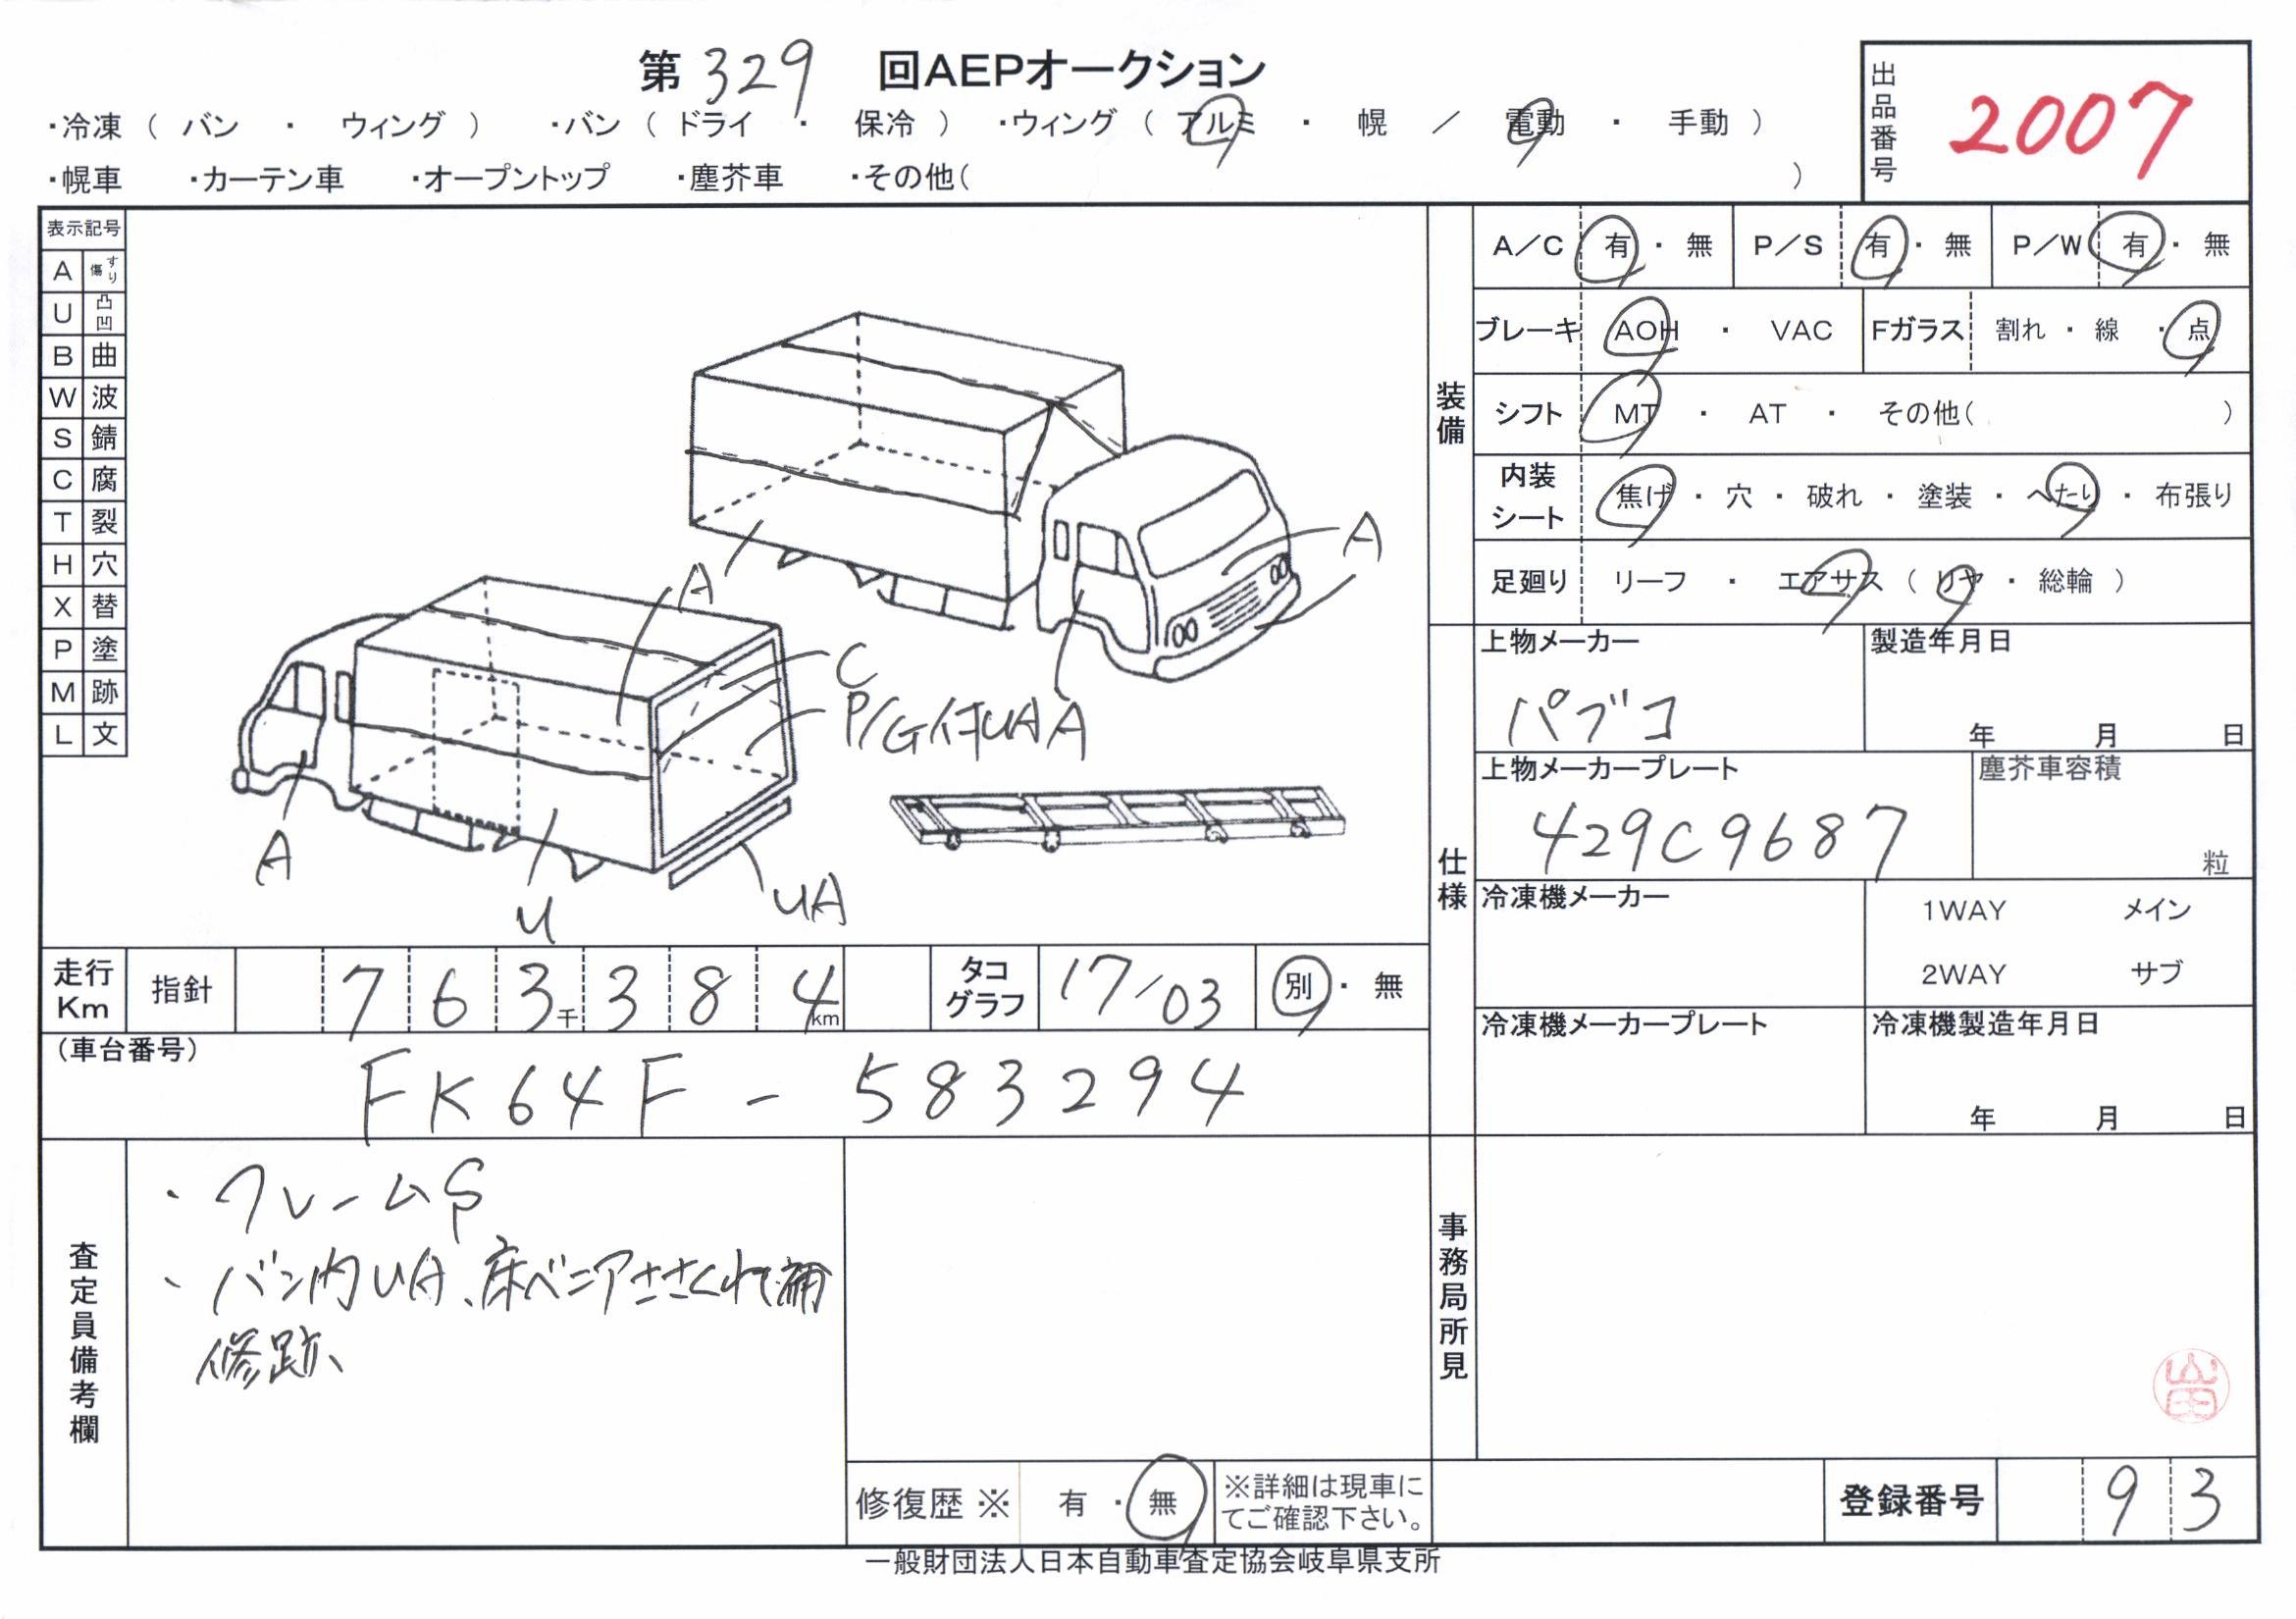 第 329 回AEPオークション
出品番号 2007
・冷凍 ( バン ・ ウィング ) ・バン ( ドライ ・ 保冷 ) ・ウィング ( アルミ ・ 幌 / 電動 ・ 手動 )
・幌車 ・カーテン車 ・オープントップ ・塵芥車 ・その他( )
表示記号
A すり傷
U 凸凹
B 曲
W 波
S 錆
C 腐
T 裂
H 穴
X 替
P 塗
M 跡
L 文
A
A
C
P/G付UA A
A
U
UA
装備
A/C 有 ・ 無 P/S 有 ・ 無 P/W 有 ・ 無
ブレーキ AOH ・ VAC Fガラス 割れ ・ 線 ・ 点
シフト MT ・ AT ・ その他( )
内装シート 焦げ ・ 穴 ・ 破れ ・ 塗装 ・ へたり ・ 布張り
足廻り リーフ ・ エアサス ( リヤ ・ 総輪 )
仕様
上物メーカー 製造年月日
パブコ 年 月 日
上物メーカープレート 塵芥車容積
429C9687 粒
冷凍機メーカー 1WAY メイン
2WAY サブ
冷凍機メーカープレート 冷凍機製造年月日
年 月 日
走行Km 指針 7 6 3千 3 8 4km タコグラフ 17/03 別 ・ 無
(車台番号)
FK64F - 583294
査定員備考欄
・フレームS
・バン内UA、床ベニアささくれ補
修跡、
修復歴 ※ 有 ・ 無 ※詳細は現車にてご確認下さい。
事務局所見
登録番号 9 3
一般財団法人日本自動車査定協会岐阜県支所